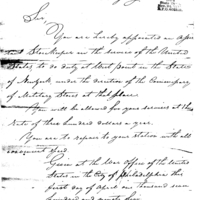 Sir,
You are hereby appointed an Assis
tant Storekeeper in the service of the United
States, to do duty at West point in the State
of New York under the direction of the Commissary
of Military Stores at that place
You will be allowed for your services at the
rate of three hundred dollars a year.
You are to repair to your station with all
convenient speed.
Given at the War Office of the United
States in the City of Philadelphia this
first day of April one thousand seven
hundred and ninety